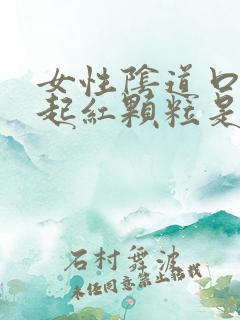 女性陰道口
起紅顆粒是
石村舞波
未經同意禁止轉載